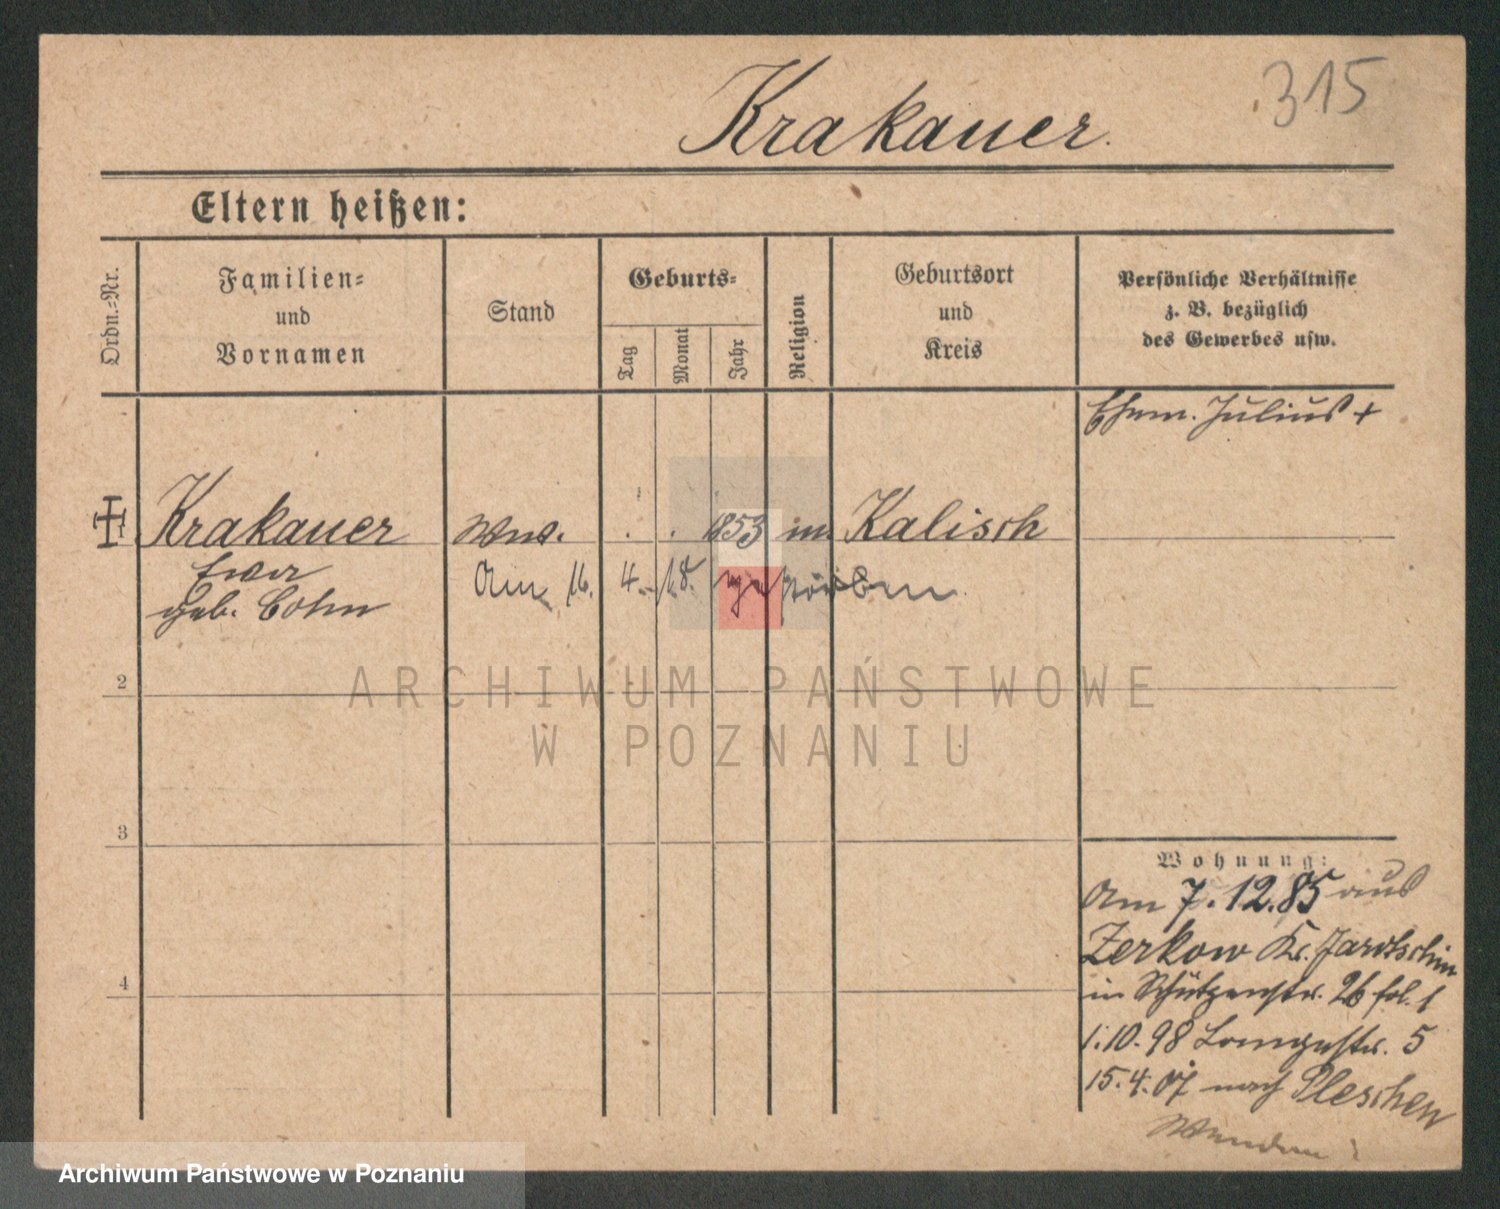 315
Krakauer.
Eltern heißen:
Ordn.-Nr.
Familien- und Vornamen
Stand
Geburts-
Tag
Monat
Jahr
Religion
Geburtsort und Kreis
Persönliche Verhältnisse
z. B. bezüglich
des Gewerbes usw.
Ehem. Julius +
Krakauer Ww. . . 1853 m. Kalisch
Ewa
geb. Cohn
Am 16. 4. 18. gestorben
2
ARCHIWUM PAŃSTWOWE
W POZNANIU
3
4
Wohnung:
Am 7.12.85 aus
Zerkow Kr. Jarotschin
in Schützenstr. 26
1.10.98 Langestr. 5
15.4.07 nach Pleschen
Wenden!
Archiwum Państwowe w Poznaniu